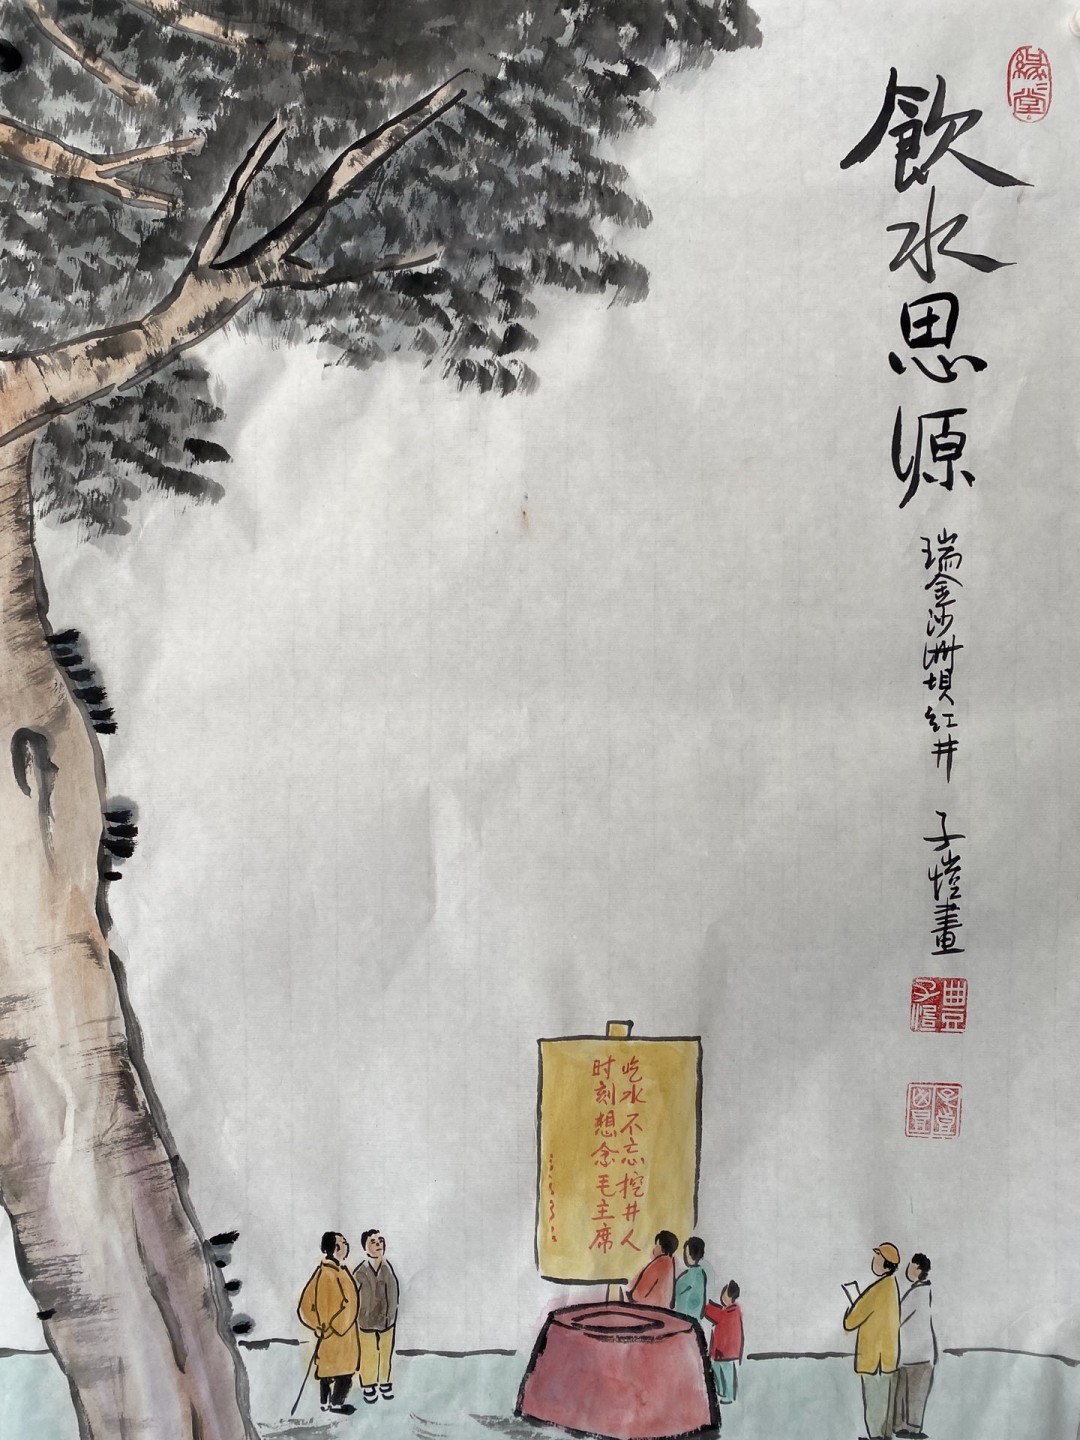 飲水思源
瑞金沙洲坝红井
子愷畫
緣緣堂
豐子愷
吃水不忘挖井人
时刻想念毛主席